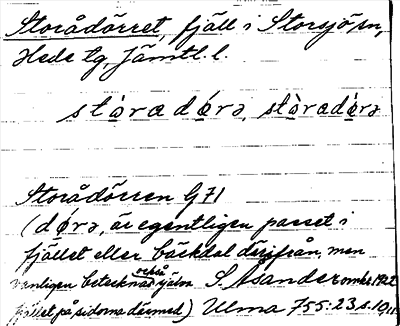 Storådörret, fjäll i Storsjö sn,
Hede tg Jämtl. l.
stòra dǿrə, stòradǿrə
Storådörren G71
(dǿrə, är egentligen passet i
fjället eller bäckdal därifrån, men
vanligen betecknas också själva
fjället på sidorna därmed) Ulma 755:23 s. 10